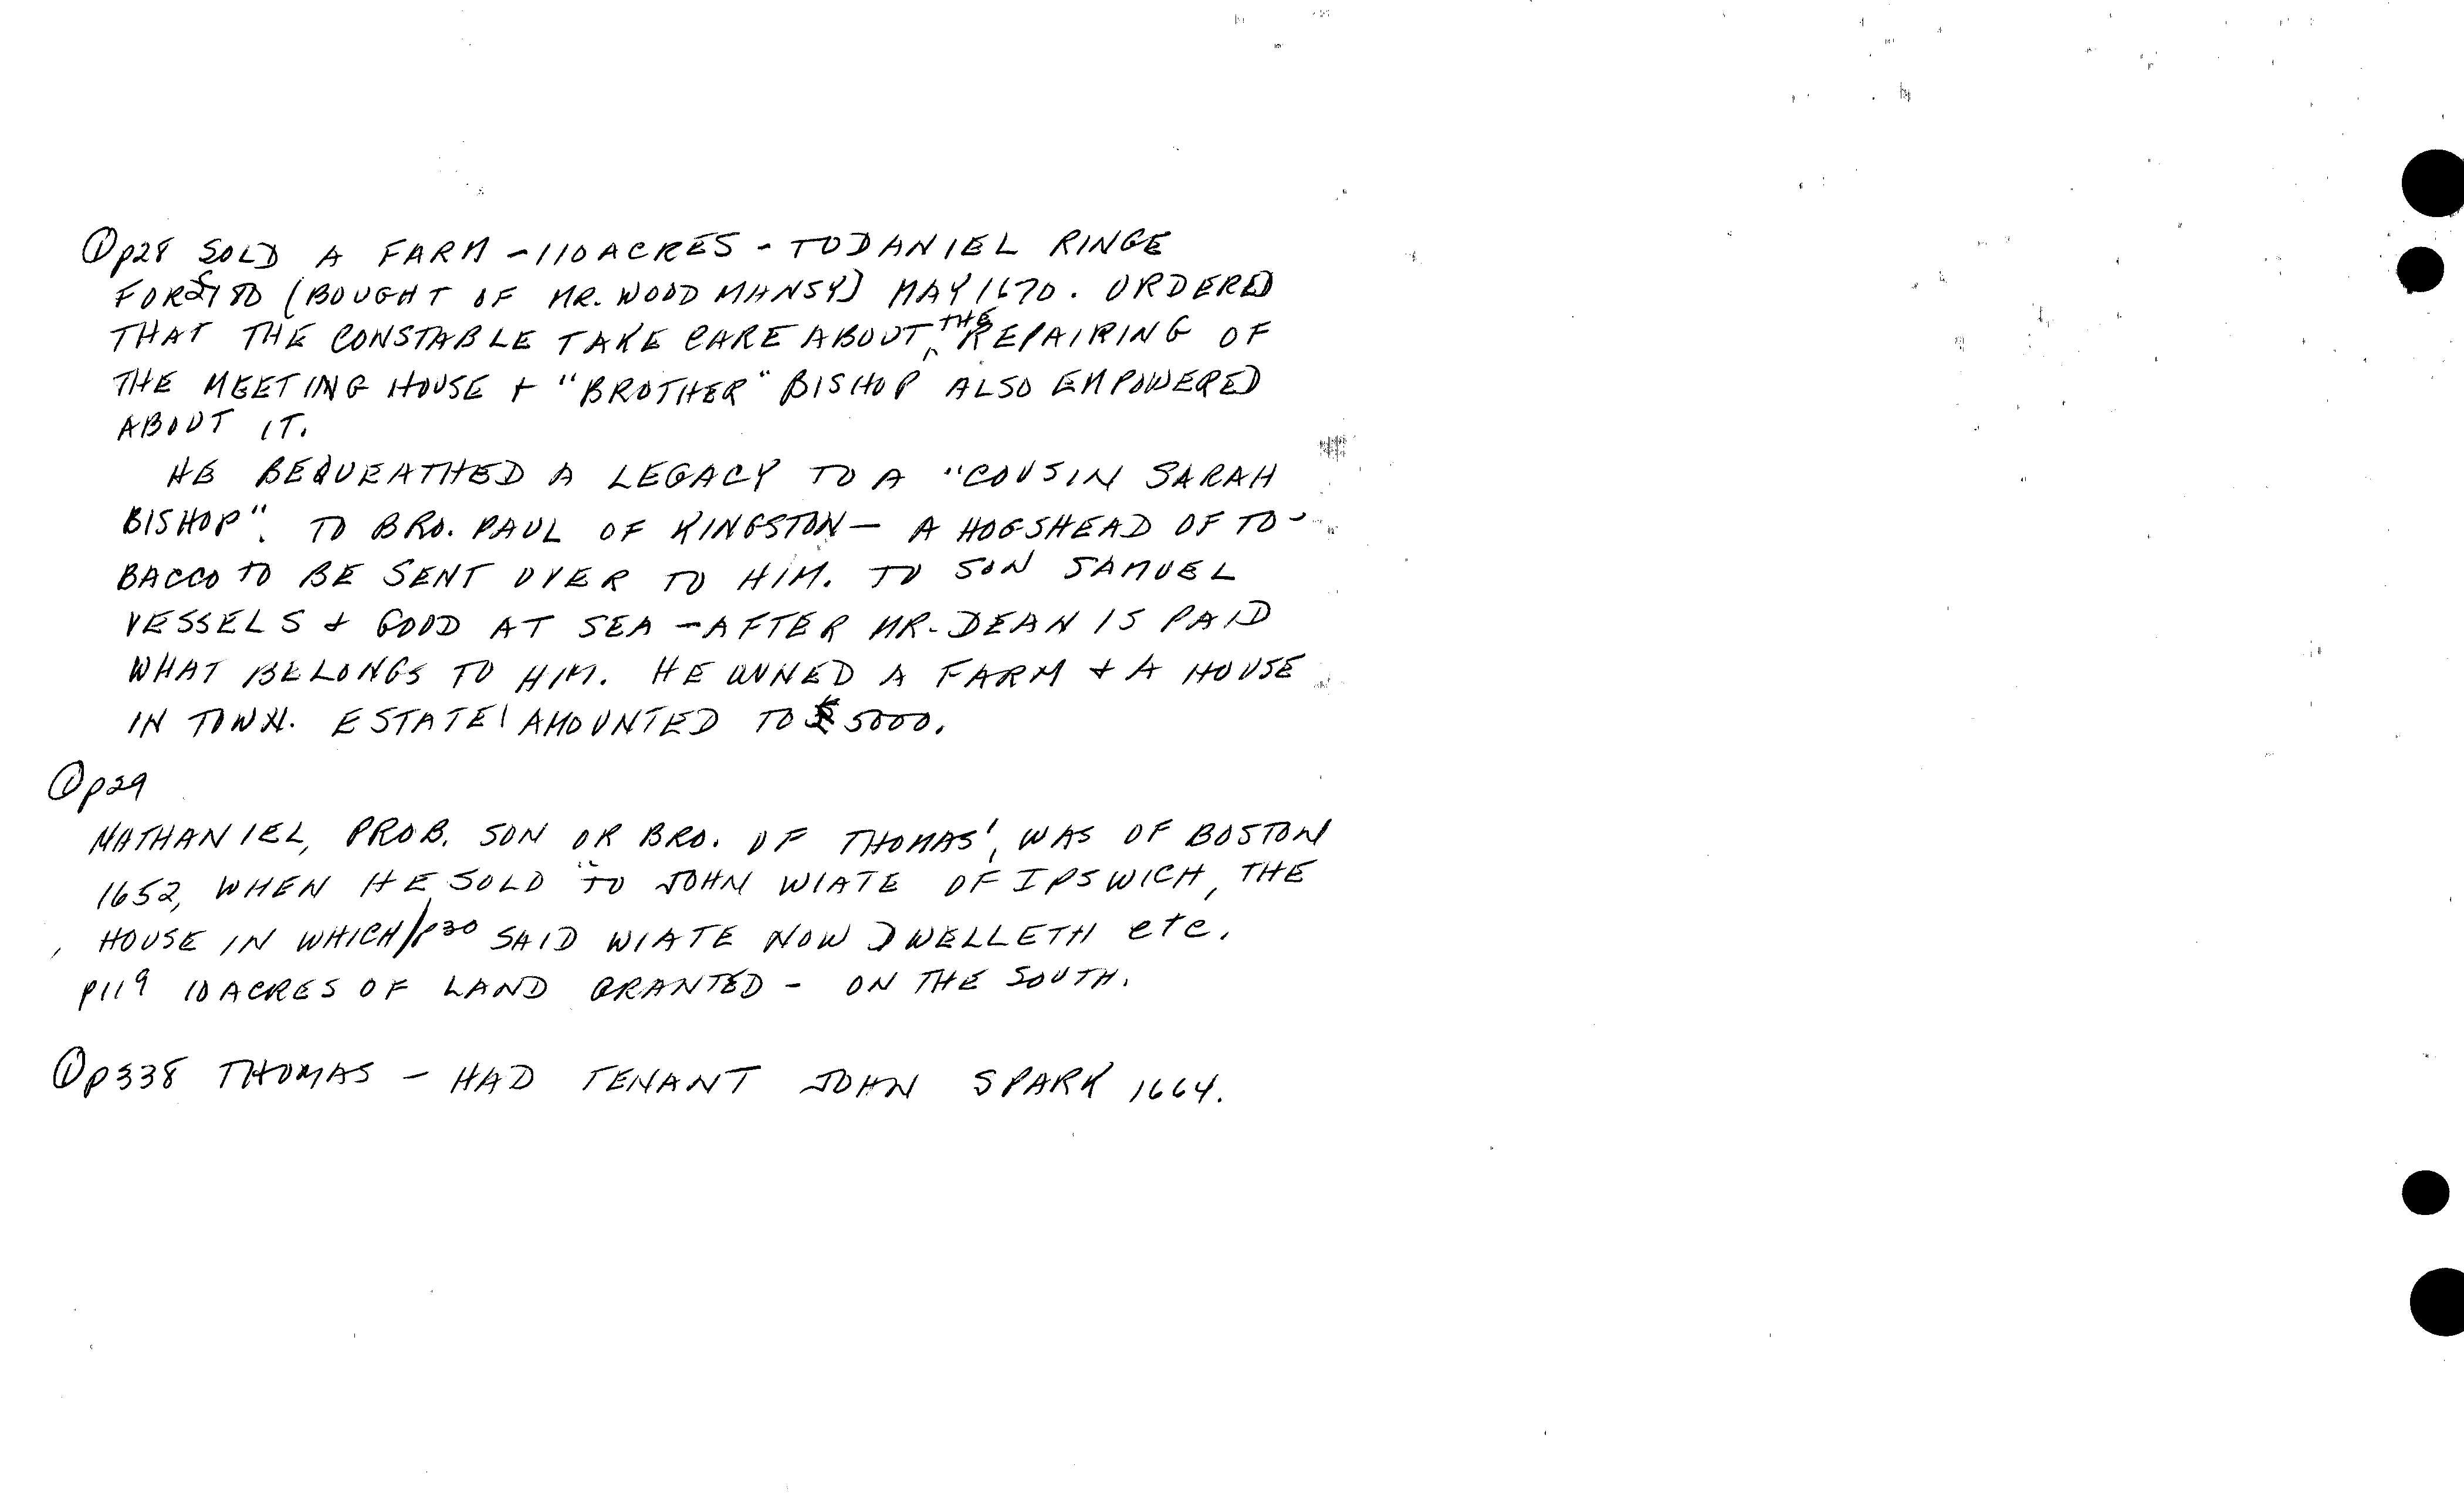 ① p28 SOLD A FARM - 110 ACRES - TO DANIEL RINGE
FOR £180 (BOUGHT OF MR. WOODMANSY) MAY 1670. ORDERED
THAT THE CONSTABLE TAKE CARE ABOUT ^THE REPAIRING OF
THE MEETING HOUSE + "BROTHER" BISHOP ALSO EMPOWERED
ABOUT IT.
HE BEQUEATHED A LEGACY TO A "COUSIN SARAH
BISHOP". TO BRO. PAUL OF KINGSTON — A HOGSHEAD OF TO-
BACCO TO BE SENT OVER TO HIM. TO SON SAMUEL
VESSELS + GOOD AT SEA - AFTER MR. DEAN IS PAID
WHAT BELONGS TO HIM. HE OWNED A FARM + A HOUSE
IN TOWN. ESTATE AMOUNTED TO £5000.
① p29
NATHANIEL, PROB. SON OR BRO. OF THOMAS', WAS OF BOSTON
1652, WHEN HE SOLD "TO JOHN WIATE OF IPSWICH, THE
HOUSE IN WHICH/p30 SAID WIATE NOW DWELLETH etc.
p119 10 ACRES OF LAND GRANTED - ON THE SOUTH.
① p338 THOMAS - HAD TENANT JOHN SPARK 1664.